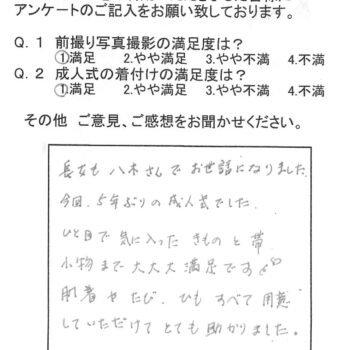 アンケートのご記入をお願い致しております。
Q.1 前撮り写真撮影の満足度は?
①満足 2.やや満足 3.やや不満 4.不満
Q.2 成人式の着付けの満足度は?
①満足 2.やや満足 3.やや不満 4.不満
その他 ご意見、ご感想をお聞かせください。
長女も 八木さんで お世話になりました。
今回、5年ぶりの成人式でした。
ひと目で気に入った きものと帯
小物まで大大大満足です
肌着やたび、ひも すべて用意
していただけて とても助かりました。